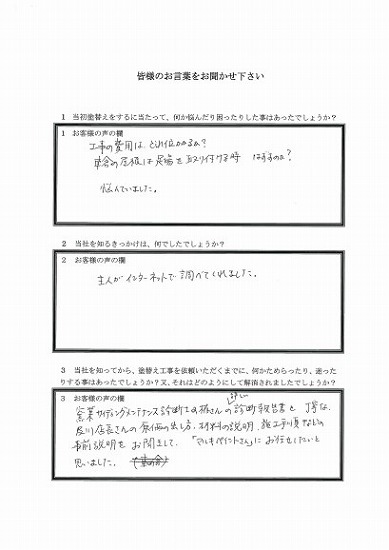 皆様のお言葉をお聞かせ下さい
1 当初塗替えをするに当たって、何か悩んだり困ったりした事はあったでしょうか?
1 お客様の声の欄
工事の費用は どれ位かかるか?
車舎の屋根は 足場を取り付ける時 はずすのか?
悩んでいました。
2 当社を知るきっかけは、何でしたでしょうか?
2 お客様の声の欄
主人がインターネットで調べてくれました。
3 当社を知ってから、塗替え工事を依頼いただくまでに、何かためらったり、迷った
りする事はあったでしょうか?又、それはどのようにして解消されましたでしょうか?
3 お客様の声の欄
詳しい
窯業サイディングメンテナンス診断士の さんの診断報告書と 丁寧な
及川店長さんの 原価の出し方、材料の説明、施工手順などの
事前説明を お聞きして、「マルキペイントさん」に お任せしたいと
思いました。